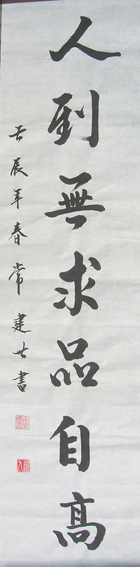 人到無求品自高
壬辰年春常建世書